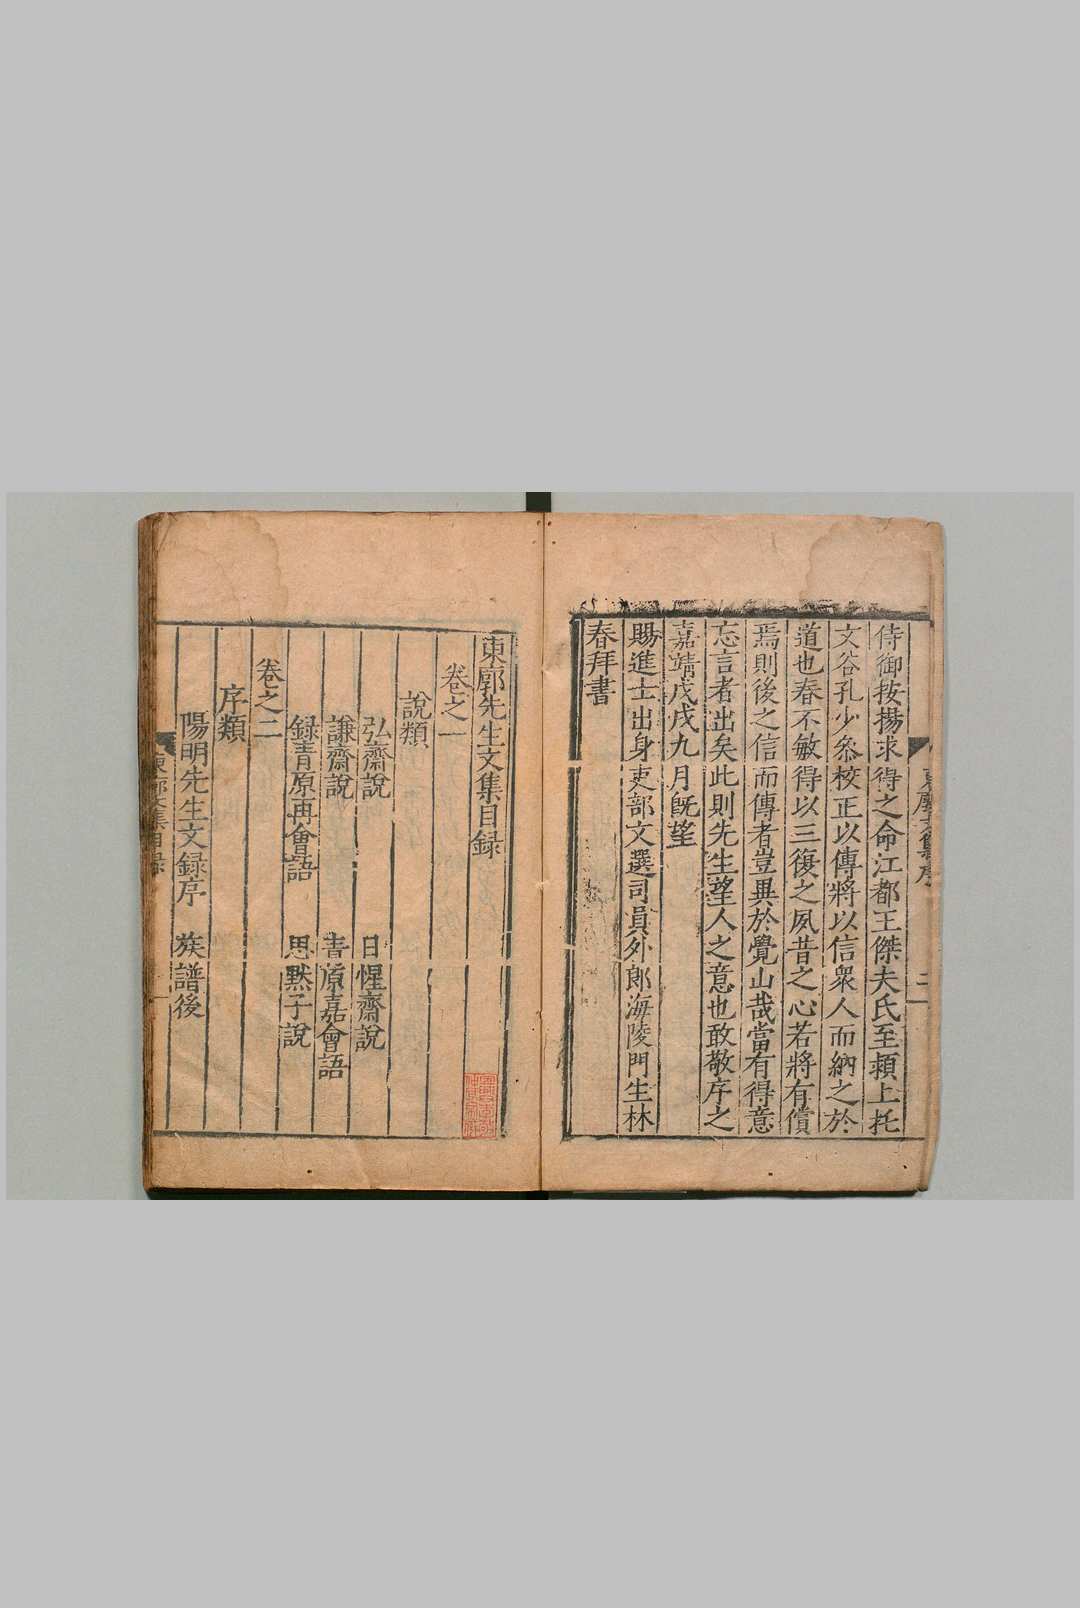 侍御按揚求得之命江都王傑夫氏至頼上托
文谷孔少叅校正以傳將以信衆人而納之於
道也春不敏得以三復之夙昔之心若將有償
焉則後之信而傳者豈異於覺山哉當有得意
忘言者出矣此則先生望人之意也敢敬序之
嘉靖戊戌九月旣望
賜進士出身吏部文選司員外郎海陵門生林
春拜書
東廓先生文集目録
卷之一
說類
弘齋說 日惺齋說
謙齋說 書原嘉會語
録青原再會語 思黙子說
卷之二
序類
陽明先生文録序 族譜後